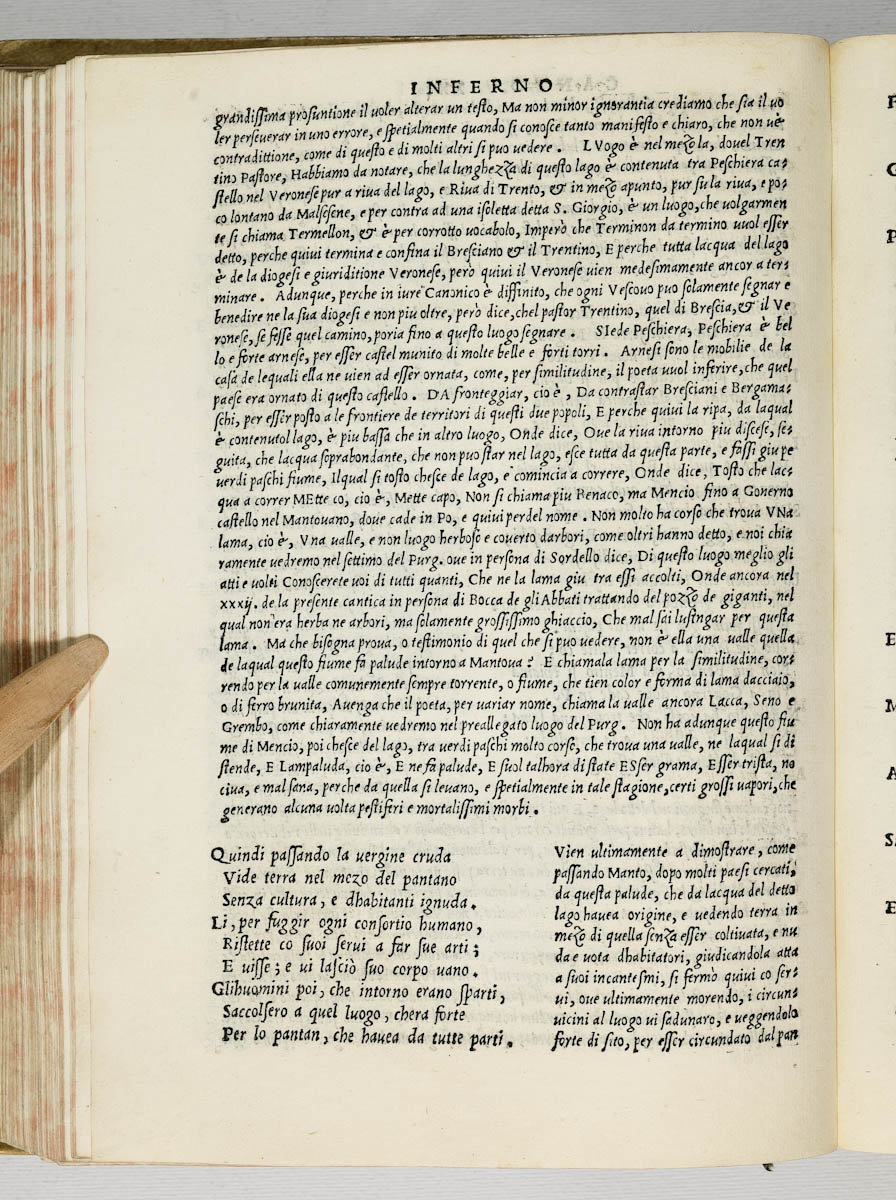 INFERNO
grandissima prosuntione il uoler alterar un testo, Ma non minor ignorantia crediamo che sia il uo
ler perseuerar in uno errore, e spetialmente quando si conosce tanto manifesto e chiaro, che non u'è
contradittione, come di questo e di molti altri si puo uedere. LVogo è nel mezo la, douel Tren
tino Pastore, Habbiamo da notare, che la lunghezza di questo lago è contenuta tra Peschiera ca-
stello nel Veronese pur a riua del lago, e Riua di Trento, & in mezo apunto, pur su la riua, e po-
co lontano da Malsesene, e per contra ad una isoletta detta S. Giorgio, è un luogo, che uolgarmen
te si chiama Termellon, & è per corrotto uocabolo, Imperò che Terminon da termino uuol esser
detto, perche quiui termina e confina il Bresciano & il Trentino, E perche tutta lacqua del lago
è de la diogesi e giuriditione Veronese, però quiui il Veronese uien medesimamente ancor a ter-
minare. Adunque, perche in iure Canonico è diffinito, che ogni Vescouo puo solamente segnar e
benedire ne la sua diogesi e non piu oltre, però dice, chel pastor Trentino, quel di Brescia, & il Ve
ronese, se fesse quel camino, poria fino a questo luogo segnare. SIede Peschiera, Peschiera è bel
lo e forte arnese, per esser castel munito di molte belle e forti torri. Arnesi sono le mobilie de la
casa de lequali ella ne uien ad esser ornata, come, per similitudine, il poeta uuol inferire, che quel
paese era ornato di questo castello. DA fronteggiar, cio è, Da contrastar Bresciani e Bergama-
schi, per esser posto a le frontiere de territori di questi due popoli, E perche quiui la ripa, da laqual
è contenutol lago, è piu bassa che in altro luogo, Onde dice, Oue la riua intorno piu discese, se-
guita, che lacqua soprabondante, che non puo star nel lago, esce tutta da questa parte, e fassi giu pe
uerdi paschi fiume, Ilqual si tosto chesce de lago, e comincia a correre, Onde dice, Tosto che lac-
qua a correr MEtte co, cio è, Mette capo, Non si chiama piu Benaco, ma Mencio fino a Gouerno
castello nel Mantouano, doue cade in Po, e quiui perdel nome. Non molto ha corso che troua VNa
lama, cio è, Vna ualle, e non luogo herboso e couerto darbori, come oltri hanno detto, e noi chia
ramente uedremo nel settimo del Purg. oue in persona di Sordello dice, Di questo luogo meglio gli
atti e uolti Conoscerete uoi di tutti quanti, Che ne la lama giu tra essi accolti, Onde ancora nel
xxxij. de la presente cantica in persona di Bocca de gli Abbati trattando del pozzo de giganti, nel
qual non era herba ne arbori, ma solamente grossissimo ghiaccio, Che mal sai lusingar per questa
lama. Ma che bisogna prova, o testimonio di quel che si puo uedere, non è ella una ualle quella
de laqual questo fiume fa palude intorno a Mantoua? E chiamala lama per la similitudine, cor-
rendo per la ualle comunemente sempre torrente, o fiume, che tien color e forma di lama dacciaio,
o di ferro brunita, Auenga che il poeta, per uariar nome, chiama la ualle ancora Lacca, Seno e
Grembo, come chiaramente uedremo nel preallegato luogo del Purg. Non ha adunque questo fiu
me di Mencio, poi chesce del lago, tra uerdi paschi molto corso, che troua una ualle, ne laqual si di
stende, E Lampaluda, cio è, E ne fa palude, E suol talhora di state ESser grama, Esser trista, no
ciua, e mal sana, perche da quella si leuano, e spetialmente in tale stagione, certi grossi uapori, che
generano alcuna uolta pestiferi e mortalissimi morbi.
Quindi passando la uergine cruda
Vide terra nel mezo del pantano
Senza cultura, e dhabitanti ignuda.
Li, per fuggir ogni consortio humano,
Ristette co suoi serui a far sue arti;
E uisse; e ui lasciò suo corpo uano.
Glihuomini poi, che intorno erano sparti,
Saccolsero a quel luogo, chera forte
Per lo pantan, che hauea da tutte parti.
Vien ultimamente a dimostrare, come
passando Manto, dopo molti paesi cercati,
da questa palude, che da lacqua del detto
lago hauea origine, e uedendo terra in
mezo di quella senza esser coltiuata, e nu
da e uota dhabitatori, giudicandola atta
a suoi incantesmi, si fermò quiui co ser-
ui, oue ultimamente morendo, i circun-
uicini al luogo ui sadunaro, e ueggendolo
forte di sito, per esser circundato dal pan